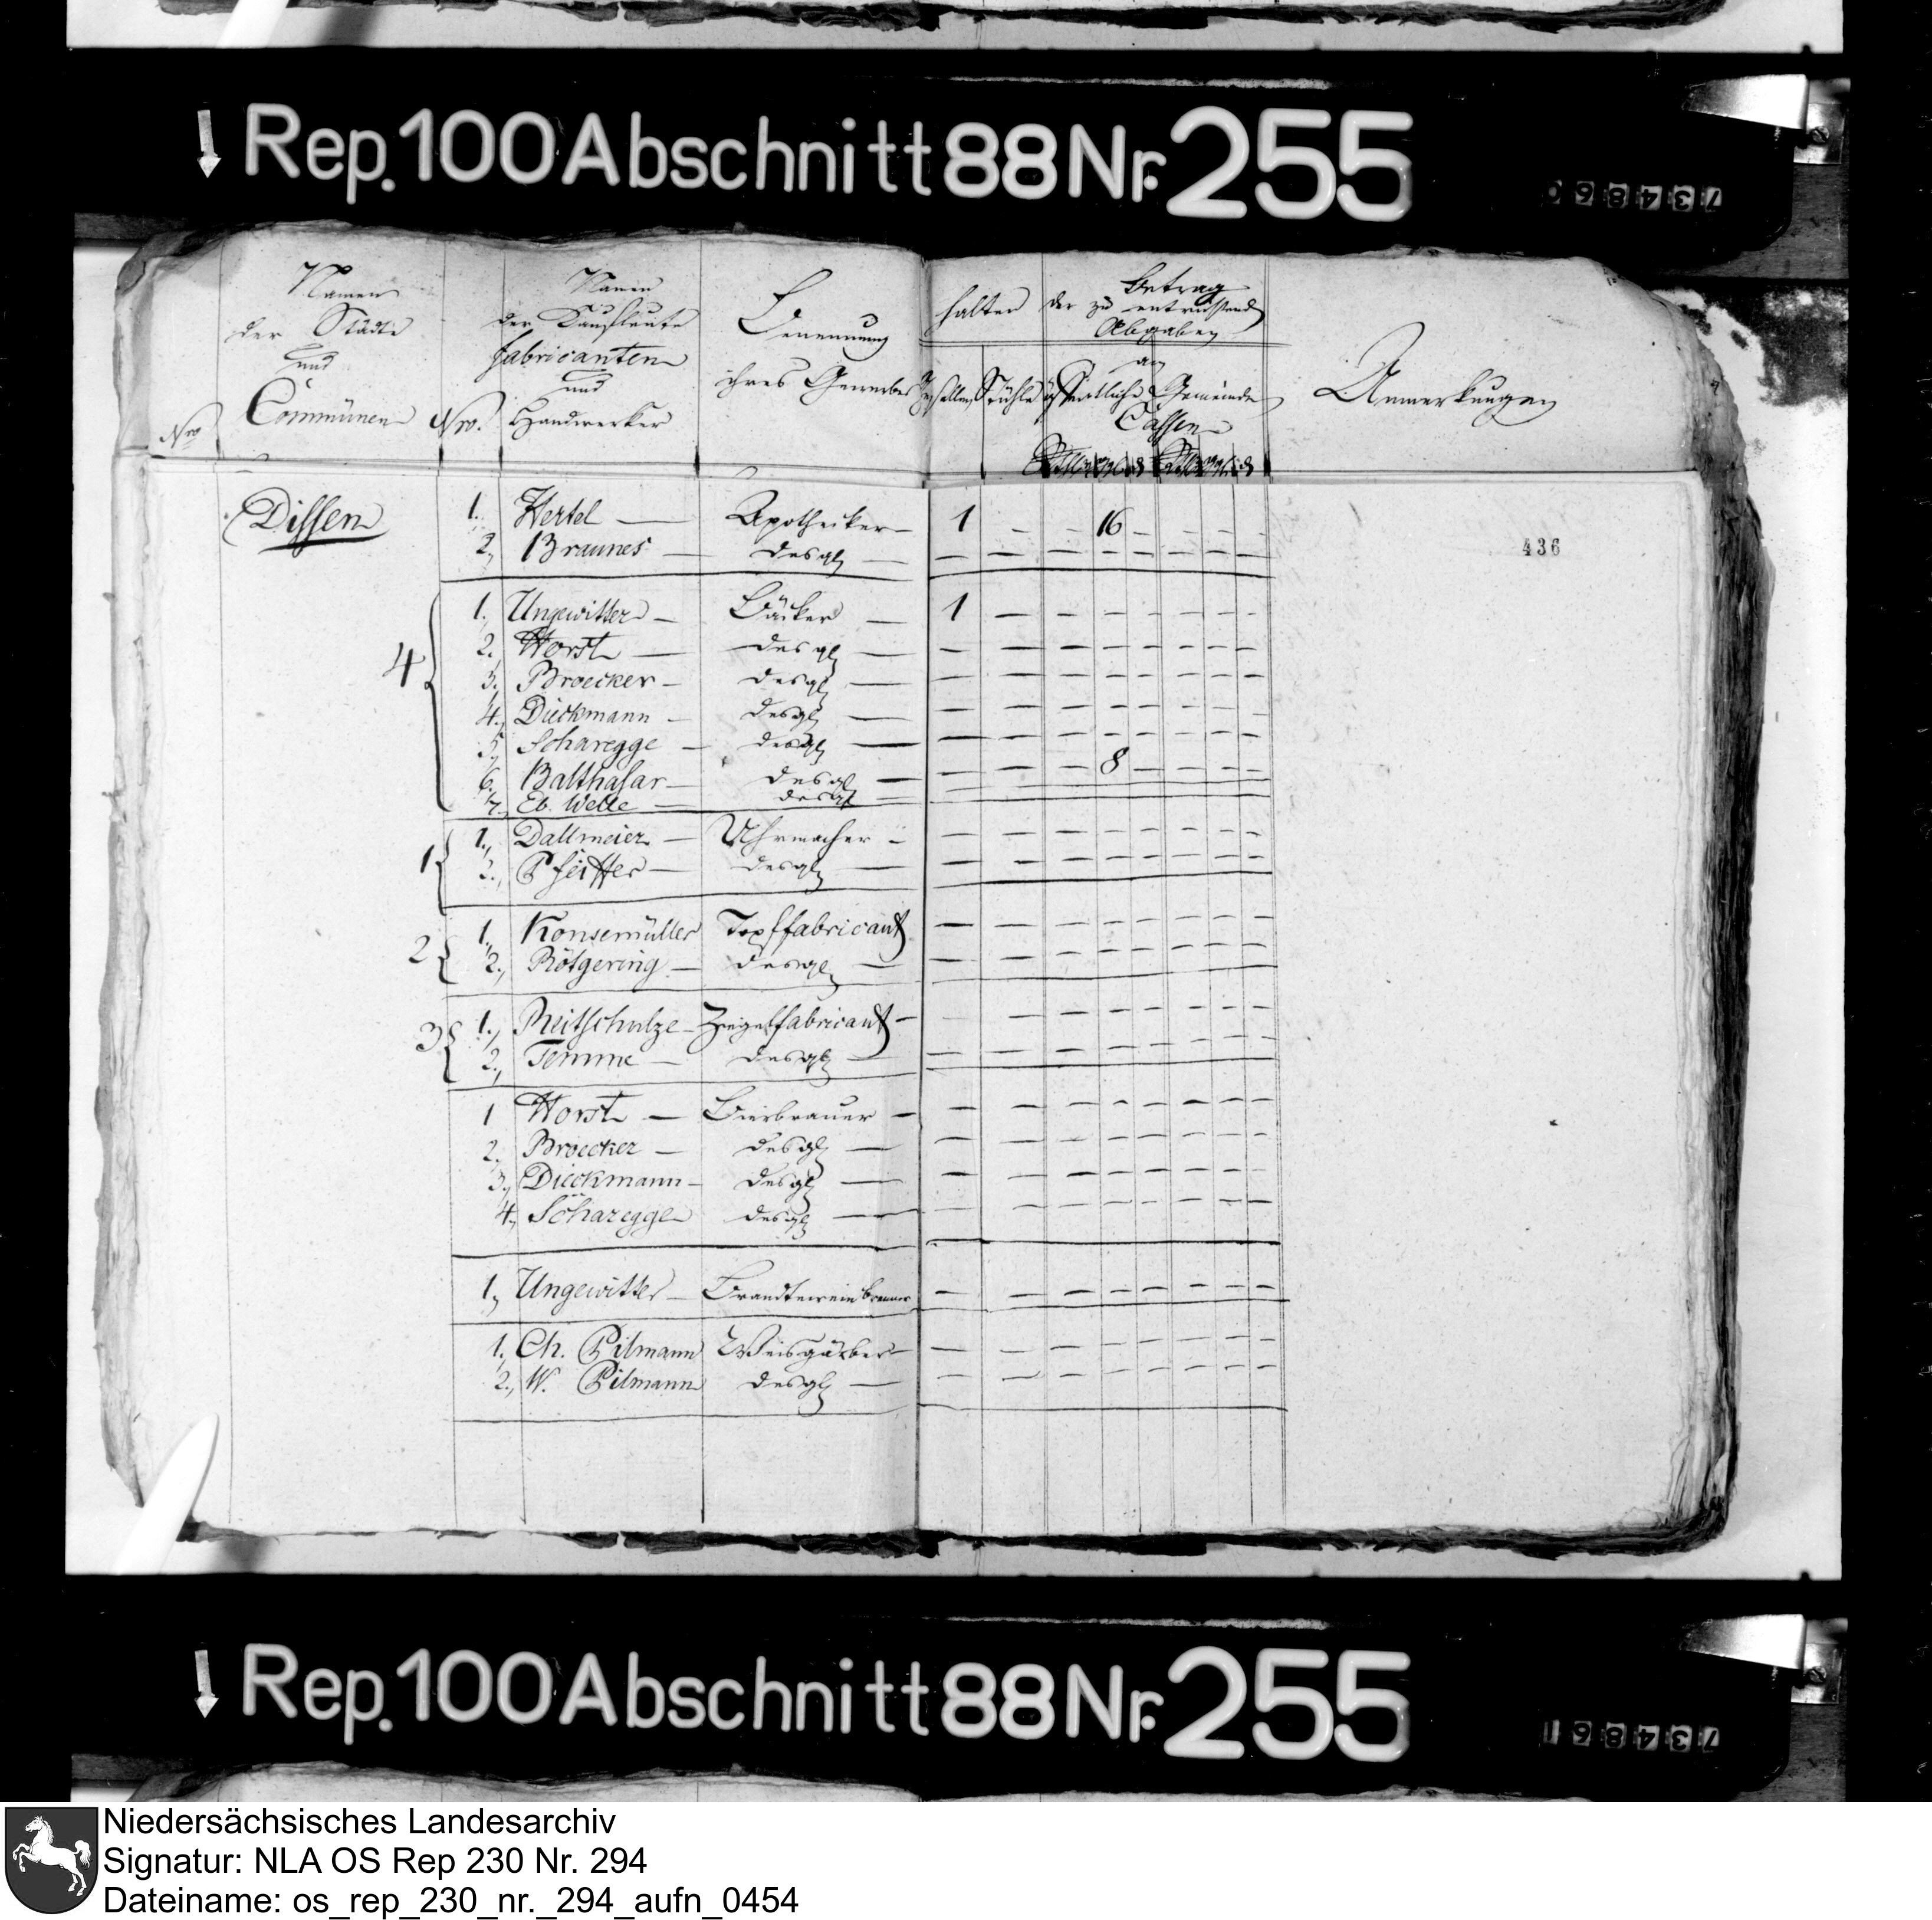 Rep. 100 Abschnitt 88 Nr. 255
734860
Nro
Namen
der Städte
und
Communen
Nro.
Namen
der Kaufleute
Fabricanten
und
Handwerker
Benennung
ihres Gewerbes
halten
Gesellen
Stühle
Betrag
der zu entrichtend
Abgaben
an
öffentliche Gemeinde
Cassen
Anmerkungen
436
Dissen
1. Hertel — Apotheker — 1 - - 16 - - - -
2. Braunes — desgl —
4
1. Ungewitter — Bäcker — 1 — — — — — — —
2. Horst — desgl —
3. Broecker — desgl —
4. Dieckmann — desgl —
5. Scharegge — desgl —
6. Balthasar — desgl — — — — 8 — — — —
7. Eb. Welle — desgl —
1
1. Dallmeier — Uhrmacher —
2. Pfeiffer — desgl —
2
1. Konsemüller Topffabricant
2. Rötgering — desgl —
3
1. Reitschulze — Ziegelfabricant —
2. Temme — desgl —
1 Horst — Bierbrauer —
2. Broecker — desgl —
3. Dieckmann — desgl —
4. Scharegge desgl —
1. Ungewitter — Brandteweinbrenner
1. Ch. Pilmann Weisgärber —
2. W. Pilmann desgl —
Rep. 100 Abschnitt 88 Nr. 255
734861
Niedersächsisches Landesarchiv
Signatur: NLA OS Rep 230 Nr. 294
Dateiname: os_rep_230_nr._294_aufn_0454